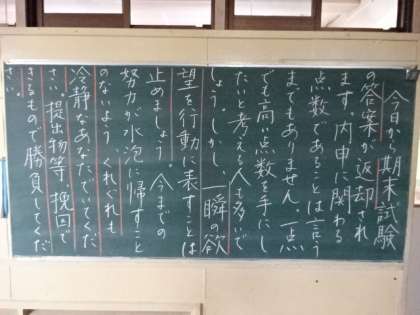 今日から期末試験
の答案が返却され
ます。内申に関わる
点数であることは言う
までもありません。一点
でも高い点数を手にし
たいと考える人も多いで
しょう。しかし、一瞬の欲
望を行動に表すことは
止めましょう。今までの
努力が水泡に帰すこと
のないようくれぐれも
冷静なあなたでいてくだ
さい。提出物等、挽回で
きるもので勝負してくだ
さい。